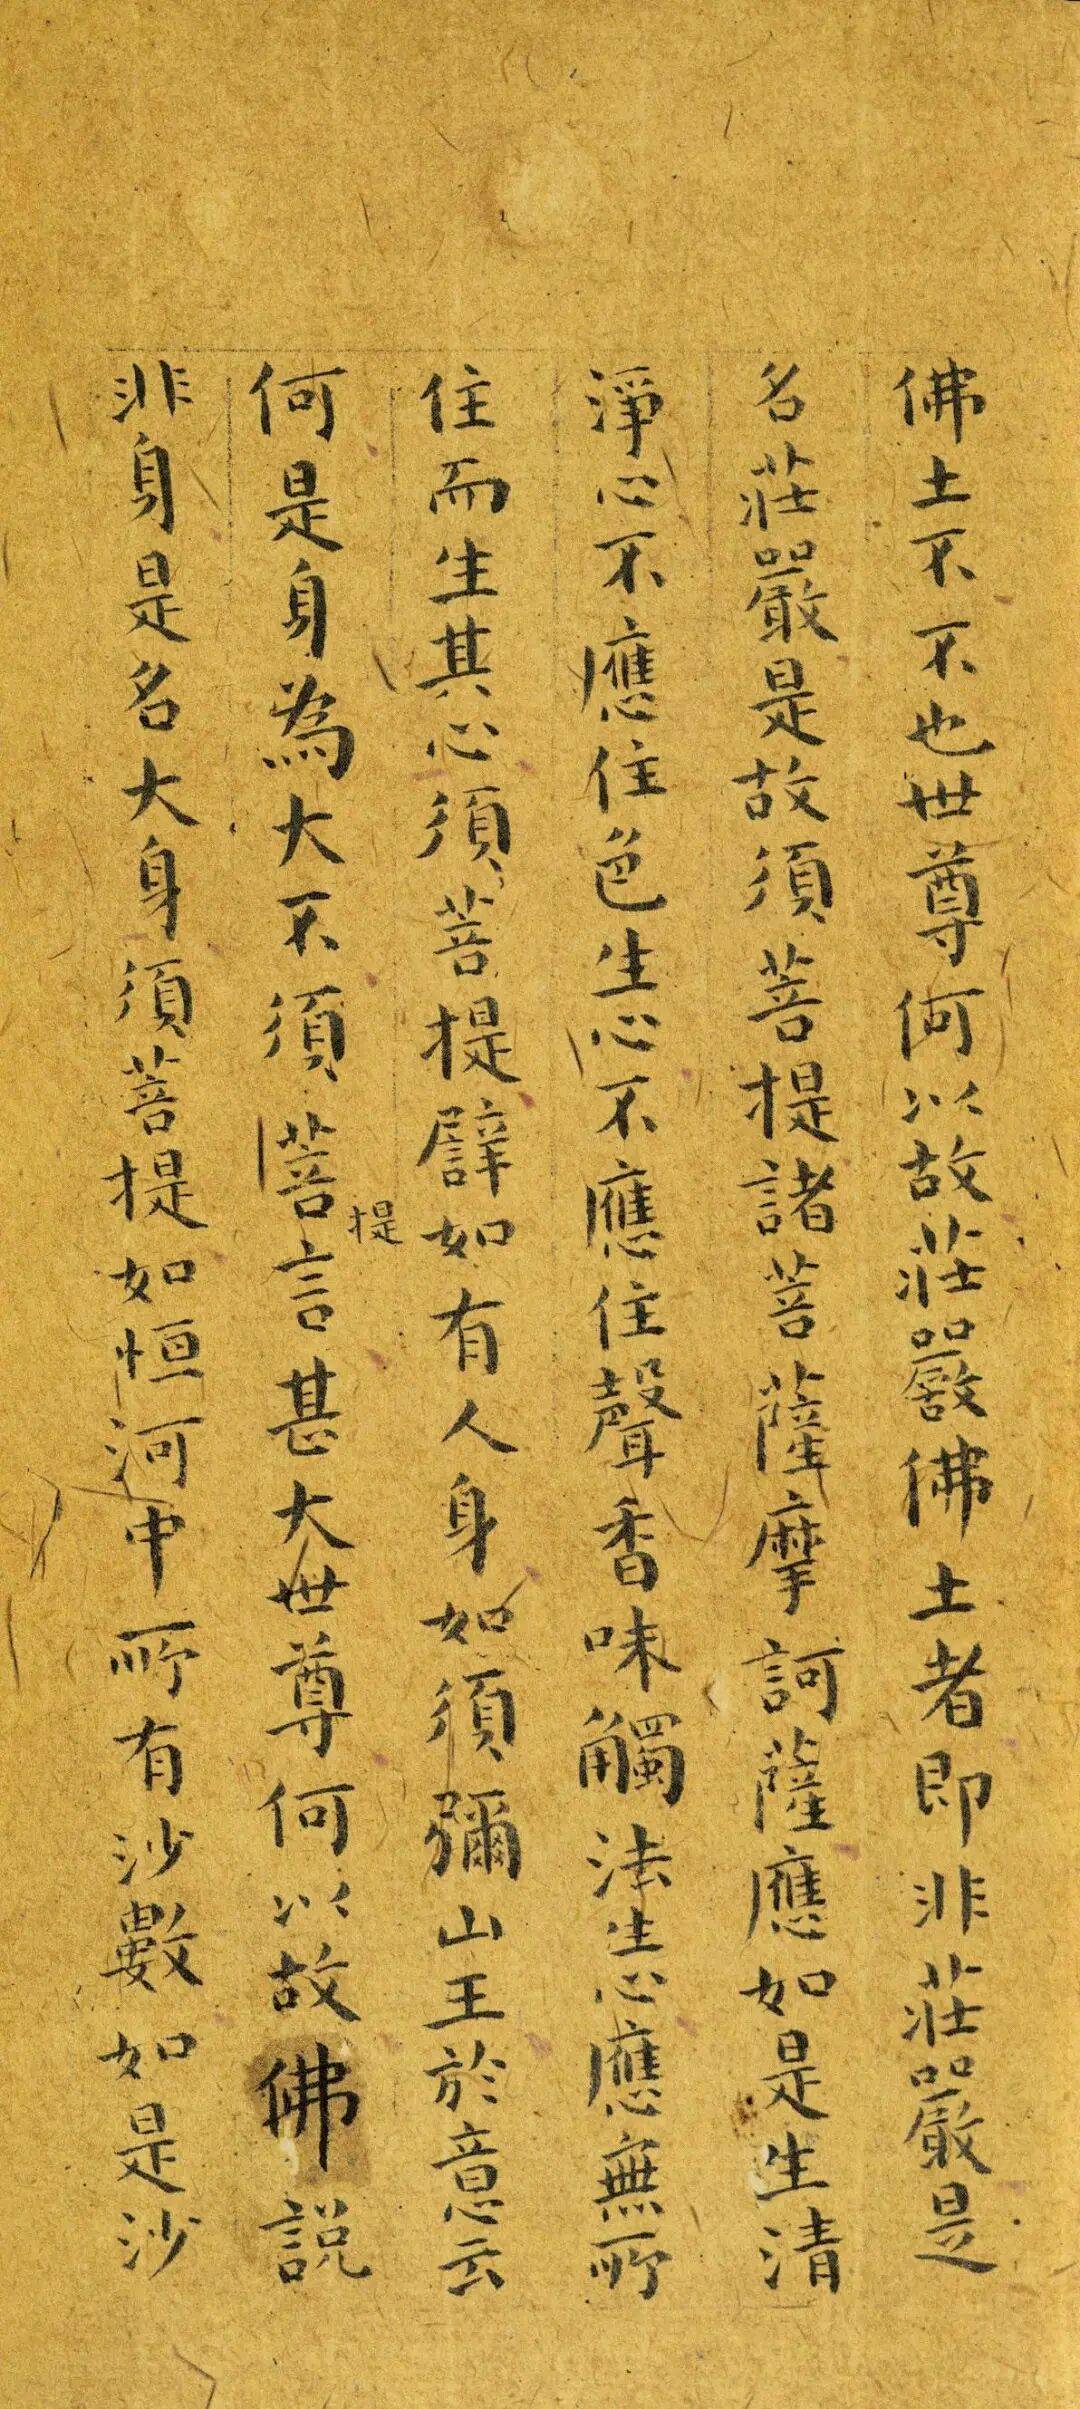 佛土不不也世尊何以故莊嚴佛土者即非莊嚴是
名莊嚴是故須菩提諸菩薩摩訶薩應如是生清
淨心不應住色生心不應住聲香味觸法生心應無所
住而生其心須菩提譬如有人身如須彌山王於意云
何是身為大不須菩提言甚大世尊何以故佛說
非身是名大身須菩提如恒河中所有沙數如是沙